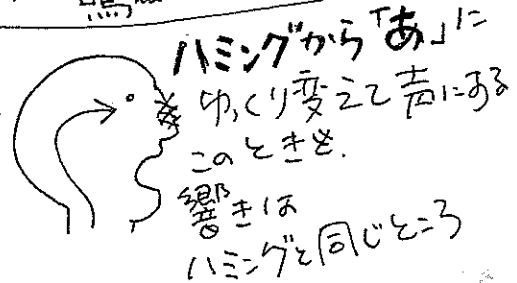 ハミングから「あ」に
ゆっくり変えて声にする
このときも.
響きは
ハミングと同じところ